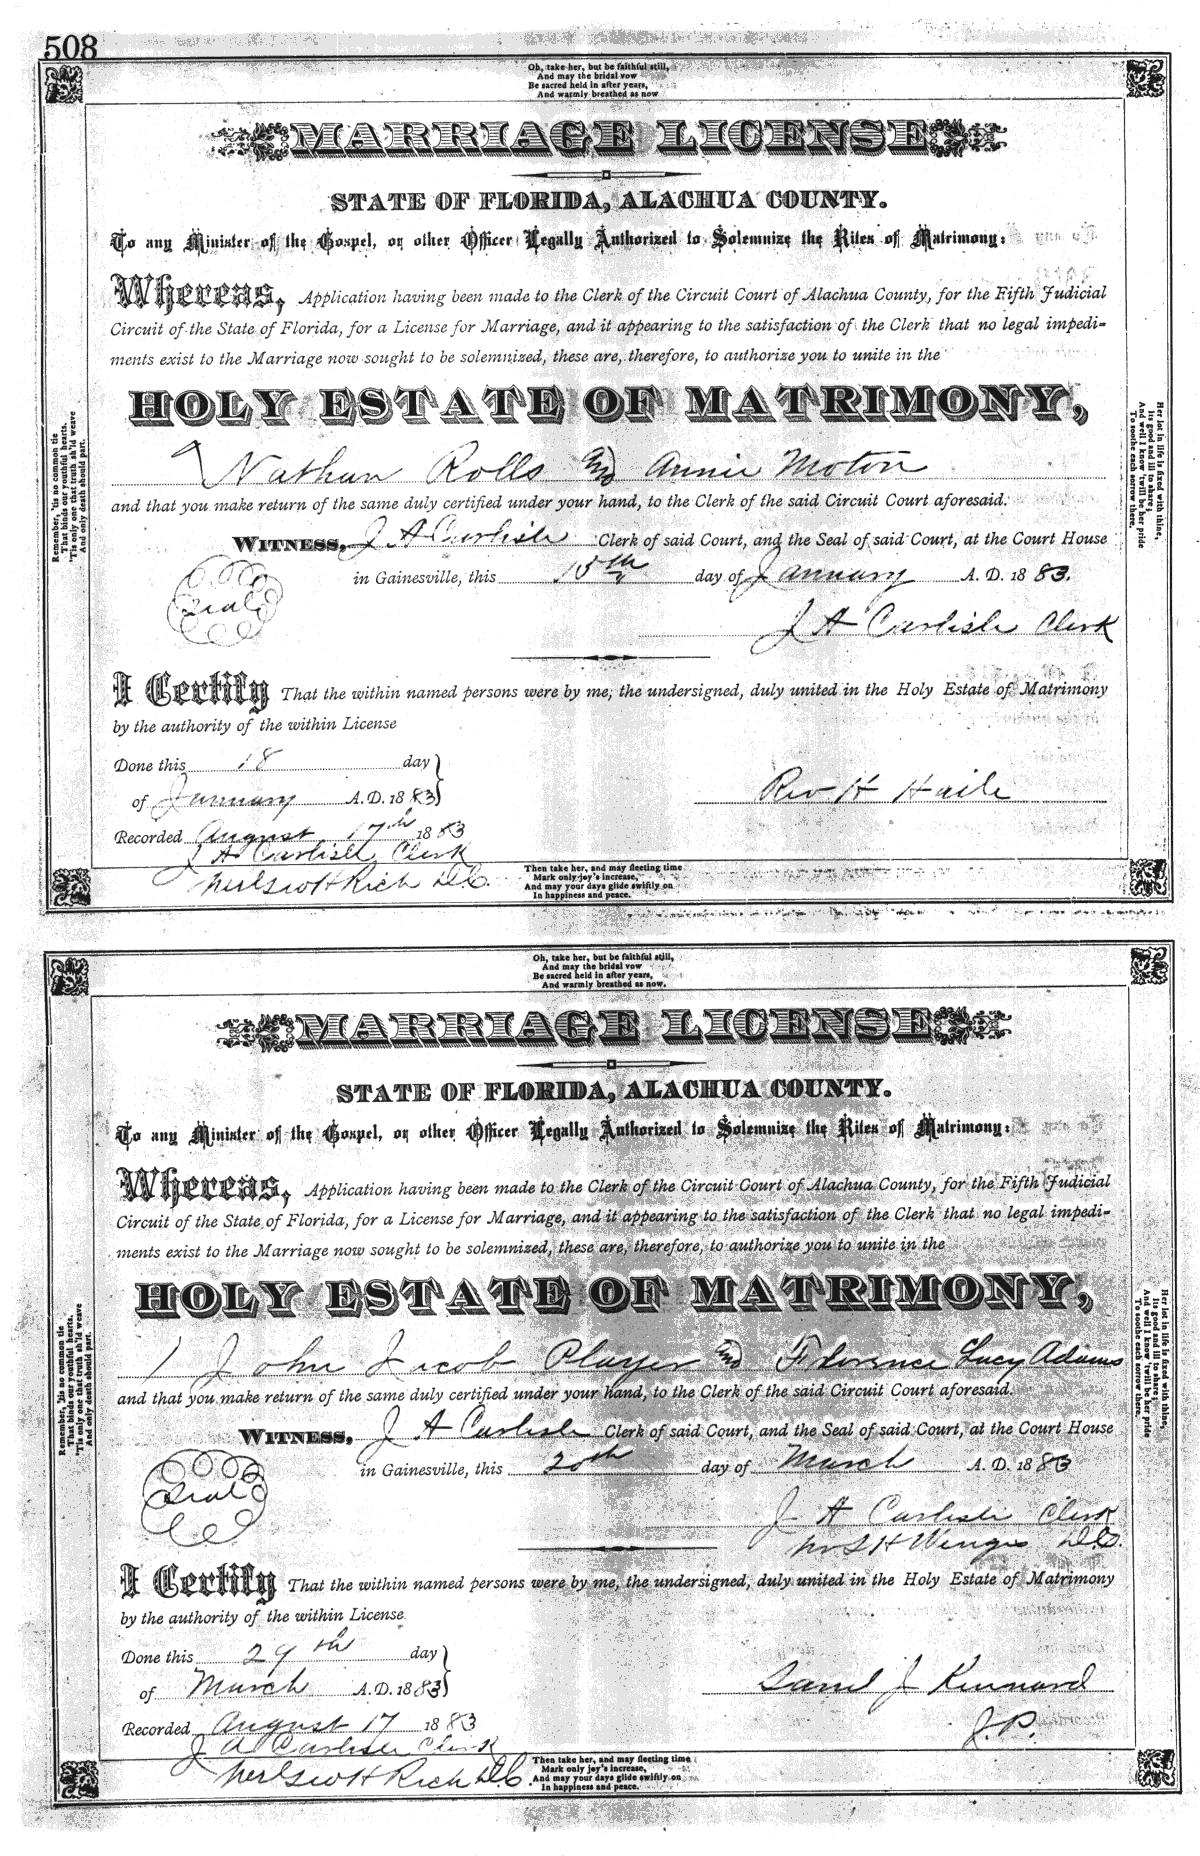 508
Oh, take her, but be faithful still,
And may the bridal vow
Be sacred held in after years,
And warmly breathed as now
MARRIAGE LICENSE
STATE OF FLORIDA, ALACHUA COUNTY.
To any Minister of the Gospel, or other Officer Legally Authorized to Solemnize the Rites of Matrimony:
Whereas, Application having been made to the Clerk of the Circuit Court of Alachua County, for the Fifth Judicial
Circuit of the State of Florida, for a License for Marriage, and it appearing to the satisfaction of the Clerk that no legal impedi-
ments exist to the Marriage now sought to be solemnized, these are, therefore, to authorize you to unite in the
HOLY ESTATE OF MATRIMONY,
Nathan Rolls and Annie Moton
and that you make return of the same duly certified under your hand, to the Clerk of the said Circuit Court aforesaid.
WITNESS, J A Carlisle Clerk of said Court, and the Seal of said Court, at the Court House
in Gainesville, this 15th day of January A. D. 1883.
Seal
J A Carlisle Clerk
I Certify That the within named persons were by me, the undersigned, duly united in the Holy Estate of Matrimony
by the authority of the within License
Done this 18 day
of January A. D. 1883
Rev H Haile
Recorded August 17th 1883
J A Carlisle Clerk
Rich D.C.
Remember, 'tis no common tie
That binds our youthful hearts,
'Tis only one that truth sh'ld weave
And only death should part.
Her lot in life is fixed with thine,
Its good and ill to share;
And well I know 'twill be her pride
To soothe each sorrow there.
Then take her, and may fleeting time
Mark only joy's increase,
And may your days glide swiftly on
In happiness and peace.
Oh, take her, but be faithful still,
And may the bridal vow
Be sacred held in after years,
And warmly breathed as now.
MARRIAGE LICENSE
STATE OF FLORIDA, ALACHUA COUNTY.
To any Minister of the Gospel, or other Officer Legally Authorized to Solemnize the Rites of Matrimony:
Whereas, Application having been made to the Clerk of the Circuit Court of Alachua County, for the Fifth Judicial
Circuit of the State of Florida, for a License for Marriage, and it appearing to the satisfaction of the Clerk that no legal impedi-
ments exist to the Marriage now sought to be solemnized, these are, therefore, to authorize you to unite in the
HOLY ESTATE OF MATRIMONY,
John Jacob Player and Florence Lucy Adams
and that you make return of the same duly certified under your hand, to the Clerk of the said Circuit Court aforesaid.
WITNESS, J A Carlisle Clerk of said Court, and the Seal of said Court, at the Court House
in Gainesville, this 20th day of March A. D. 1883
Seal
J A Carlisle Clerk
D.C.
I Certify That the within named persons were by me, the undersigned, duly united in the Holy Estate of Matrimony
by the authority of the within License.
Done this 29th day
of March A. D. 1883
Saml J Kennard
J.P.
Recorded August 17 1883
J A Carlisle Clerk
Rich D.C.
Remember, 'tis no common tie
That binds our youthful hearts,
'Tis only one that truth sh'ld weave
And only death should part.
Her lot in life is fixed with thine,
Its good and ill to share;
And well I know 'twill be her pride
To soothe each sorrow there.
Then take her, and may fleeting time
Mark only joy's increase,
And may your days glide swiftly on
In happiness and peace.